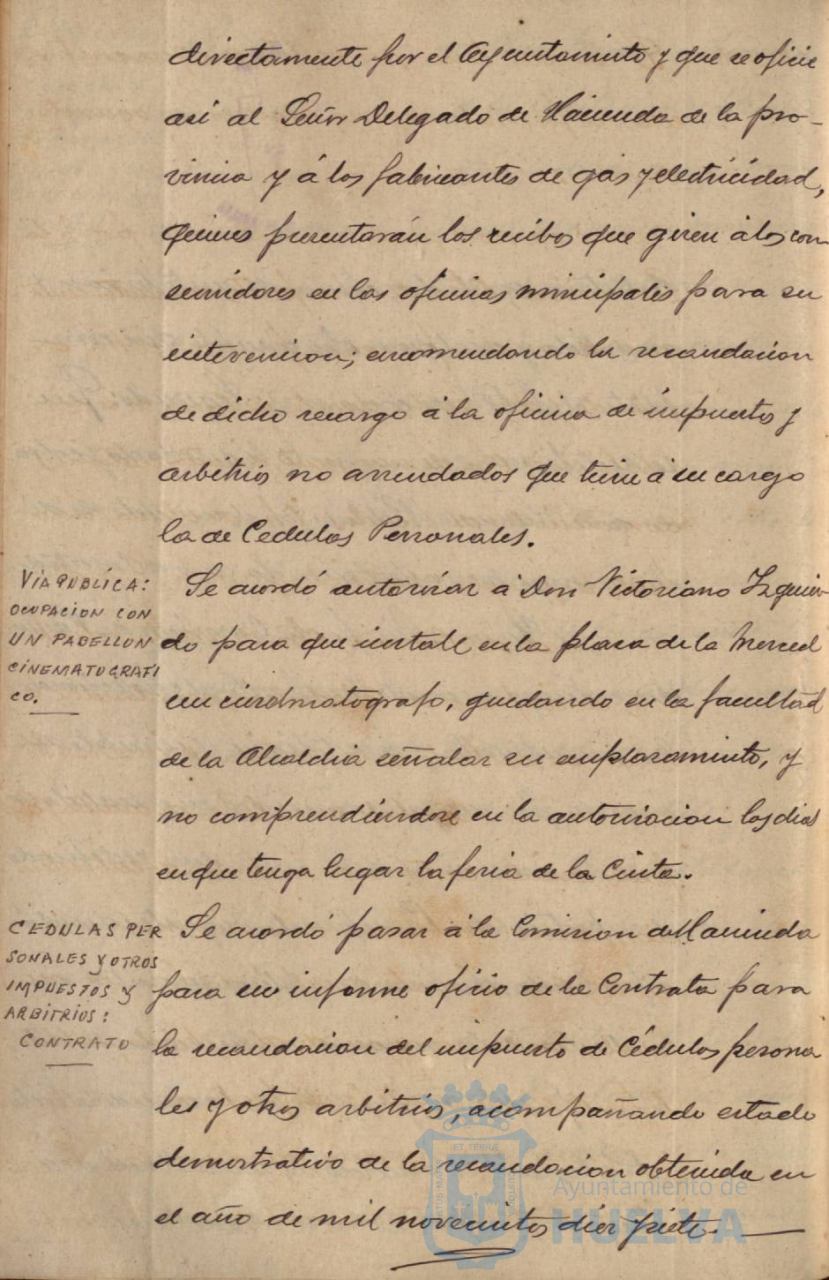 directamente por el Ayuntamiento y que se oficie
así al Señor Delegado de Hacienda de la pro-
vincia y á los fabricantes de gas y electricidad,
quienes presentarán los recibos que giren á los con
sumidores en las oficinas municipales para su
intervencion; encomendando la recaudacion
de dicho recargo á la oficina de impuestos y
arbitrios no arrendados que tiene á su cargo
la de Cedulas Personales.
VIA PUBLICA:
OCUPACION CON
UN PABELLON
CINEMATOGRAFI
CO.
Se acordó autorizar á Don Victoriano Izquier-
do para que instale en la plaza de la Merced
un cinematografo, quedando en la facultad
de la Alcaldia señalar su emplazamiento, y
no comprendiéndose en la autorizacion los dias
en que tenga lugar la feria de la Cinta.
CEDULAS PER
SONALES Y OTROS
IMPUESTOS Y
ARBITRIOS:
CONTRATO
Se acordó pasar á la Comision de Hacienda
para su informe oficio de la Contrata para
la recaudacion del impuesto de Cédulas persona
les y otros arbitrios, acompañando estado
demostrativo de la recaudacion obtenida en
el año de mil novecientos diez y siete.
Ayuntamiento de
HUELVA